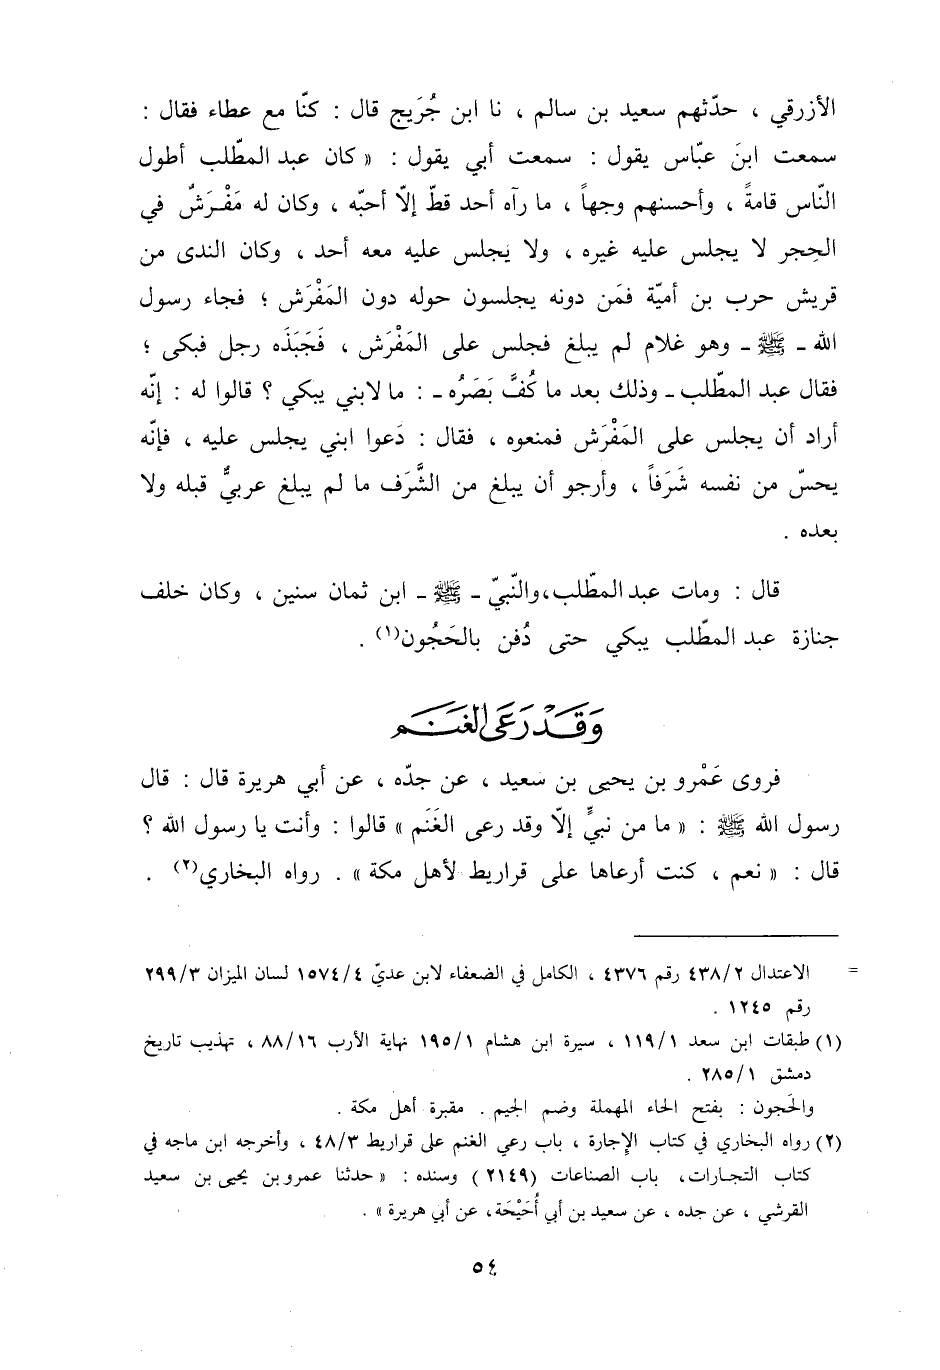 الأزرقي ، حدّثهم سعيد بن سالم ، نا ابن جُرَيج قال : كنّا مع عطاء فقال :
سمعت ابنَ عبّاس يقول : سمعت أبي يقول : « كان عبد المطّلب أطول
النّاس قامةً ، وأحسنهم وجهاً ، ما رآه أحد قطّ إلاّ أحبّه ، وكان له مَفْرَشٌ في
الحِجر لا يجلس عليه غيره ، ولا يجلس عليه معه أحد ، وكان الندى من
قريش حرب بن أميّة فمَن دونه يجلسون حوله دون المَفْرَش ؛ فجاء رسول
الله ـ ﷺ ـ وهو غلام لم يبلغ فجلس على المَفْرَش ، فَجَبَذَه رجل فبكى ؛
فقال عبد المطّلب ـ وذلك بعد ما كُفَّ بَصَرُه ـ : ما لابني يبكي ؟ قالوا له : إنّه
أراد أن يجلس على المَفْرَش فمنعوه ، فقال : دَعوا ابني يجلس عليه ، فإنّه
يحسّ من نفسه شَرَفاً ، وأرجو أن يبلغ من الشَّرَف ما لم يبلغ عربيٌّ قبله ولا
بعده .
قال : ومات عبد المطّلب، والنّبيّ ـ ﷺ ـ ابن ثمان سنين ، وكان خلف
جنازة عبد المطّلب يبكي حتى دُفن بالحَجُون(١) .
وَقَدْ رَعَى الغَنَم
فروى عَمْرو بن يحيى بن سعيد ، عن جدّه ، عن أبي هريرة قال : قال
رسول الله ﷺ : « ما من نبيٍّ إلاّ وقد رعى الغَنَم » قالوا : وأنت يا رسول الله ؟
قال : « نعم ، كنت أرعاها على قراريط لأهل مكة » . رواه البخاري(٢) .
= الاعتدال ٤٣٨/٢ رقم ٤٣٧٦ ، الكامل في الضعفاء لابن عديّ ١٥٧٤/٤ لسان الميزان ٢٩٩/٣
رقم ١٢٤٥ .
(١) طبقات ابن سعد ١١٩/١ ، سيرة ابن هشام ١٩٥/١ نهاية الأرب ٨٨/١٦ ، تهذيب تاريخ
دمشق ٢٨٥/١ .
والحَجون : بفتح الحاء المهملة وضم الجيم . مقبرة أهل مكة .
(٢) رواه البخاري في كتاب الإجارة ، باب رعي الغنم على قراريط ٤٨/٣ ، وأخرجه ابن ماجه في
كتاب التجارات، باب الصناعات (٢١٤٩) وسنده : « حدثنا عمرو بن يحيى بن سعيد
القرشي ، عن جده ، عن سعيد بن أبي أُحَيْحَة، عن أبي هريرة » .
٥٤